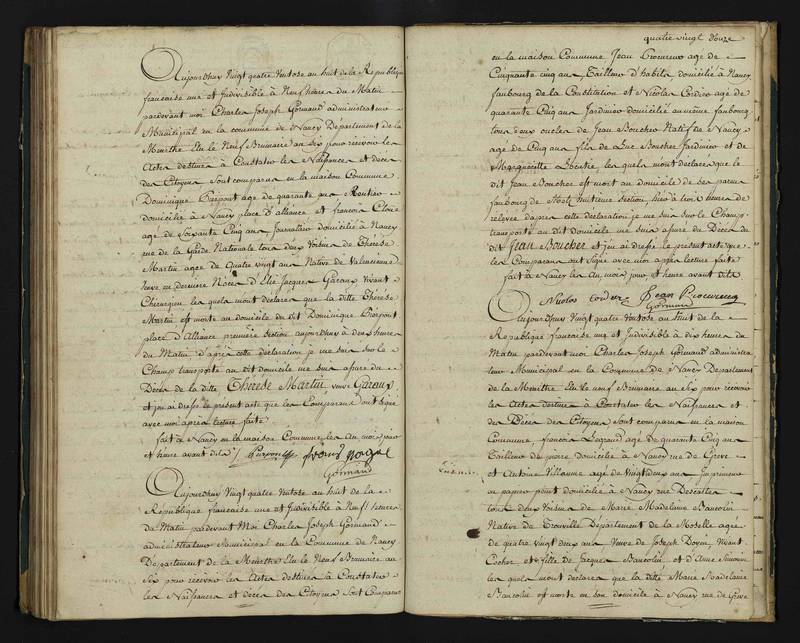 Aujourdhuy Vingt quatre Ventose an huit de la Republique
francaise une et Indivisible à Neuf heures du Matin
pardevant moi Charles Joseph Gormand administrateur
Municipal en la commune de Nancy Département de la
Meurthe Elu le Neuf Brumaire an Six pour recevoir les
Actes destinés à Constater les Naissances et décès
des Citoyens sont comparus en la maison Commune
Dominique agé de quarante ans Rentier
domicilié à Nancy place d'alliance et francois
agé de soixante Cinq ans, Journalier domicilié à Nancy
rue de la Garde Nationale tous deux Voisins de Thérèse
Martin agée de Quatre vingt ans Native de Valencienne
Veuve en derniere Noces d'Elie Jacques Garaux Vivant
Chirurgien les quels mont déclaré que la ditte Thérèse
Martin est morte au domicile du dit Dominique
place d'Alliance première section aujourdhuy à deux heures
du Matin d'après cette déclaration je me suis sur le
Champ transporté au dit domicile me suis assuré du
Décès de la ditte Thérèse Martin veuve Garaux
et j'en ai dressé le présent acte que les Comparans ont signé
avec moi après lecture faite
fait à Nancy en la maison Commune les An, mois, jour
et heure avant dits
Gormand
Aujourdhuy Vingt quatre Ventose an huit de la
Republique francaise une et Indivisible à Neuf heures
du Matin pardevant Moi Charles Joseph Gormand
administrateur Municipal en la Commune de Nancy
Departement de la Meurthe Elu le Neuf Brumaire an
Six pour recevoir les Actes destinés à Constater
les Naissances et décès des Citoyens sont Comparus
quatre vingt douze
en la maison Commune Jean Procureur agé de
Cinquante cinq ans, Tailleur d'habits domicilié à Nancy
faubourg de la Constitution et Nicolas Cordier agé de
quarante Cinq ans Jardinier domicilié au même faubourg
tous deux oncles de Jean Boucher Natif de Nancy
agé de Cinq ans fils de Luc Boucher Jardinier et de
Marguerite les quels mont déclaré que le
dit Jean Boucher est mort au domicile de ses parens
faubourg de Metz huitieme section, hier à trois heures de
relevée dapres cette declaration je me suis sur le Champ
transporté au dit domicile me suis assuré du Décès du
dit Jean Boucher et j'en ai dressé le présent acte que
les Comparans ont signé avec moi après lecture faite
fait à Nancy les An, mois, jour et heure avant dits
Nicolas Cordier Jean
Gormand
Aujourdhuy Vingt quatre Ventose an huit de la
Republique francaise une et Indivisible à dix heures du
Matin pardevant moi Charles Joseph Gormand administra
teur Municipal en la Commune de Nancy Departement
de la Meurthe Elu le neuf Brumaire an Six pour recevoir
les Actes destinés à Constater les Naissances et
des Décès des Citoyens sont comparus en la maison
Commune, francois Legrand agé de quarante Cinq ans
Tailleur de pierre domicilié à Nancy rue de Grève
et Antoine Villaume agé de vingt deux ans Imprimeur
en papier peint domicilié à Nancy rue Descartes
tous deux Voisins de Marie Madelaine Bancolin
Native de Trouville Departement de la Moselle agée
de quatre vingt deux ans Veuve de Joseph Doyen, Vivant
Cocher et fille de Jacques Bancolin et d'Anne Simonin
les quels mont declaré que la ditte Marie Madelaine
Bancolin est morte en son domicile à Nancy rue de Grève